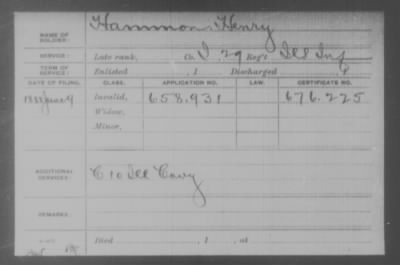 NAME OF SOLDIER: Hammon, Henry
SERVICE: Late rank, Co. I, 29 Reg't Ill Inf
TERM OF SERVICE: Enlisted , 1 Discharged , 1
DATE OF FILING. CLASS. APPLICATION NO. LAW. CERTIFICATE NO.
1888 June 9 Invalid, 658.931 676.225
Widow,
Minor,
ADDITIONAL SERVICES: C 10 Ill Cavy
REMARKS:
Died , 1 , at